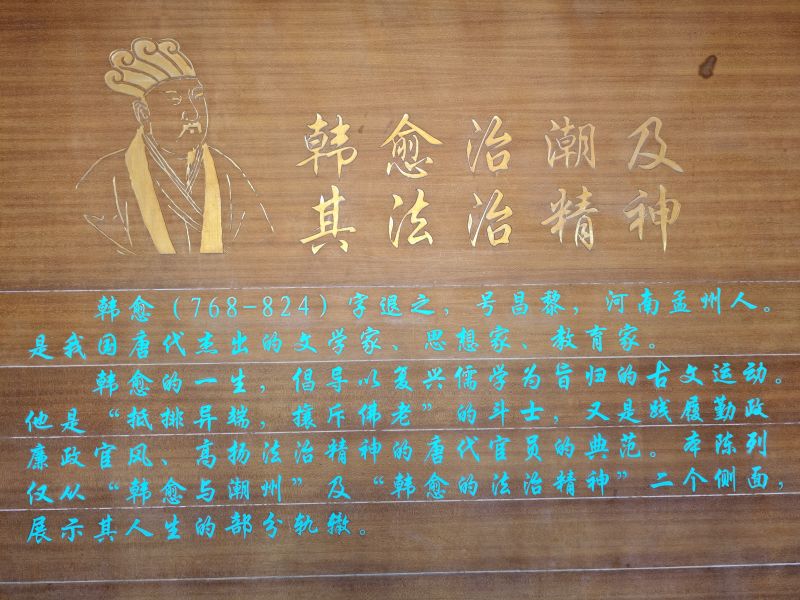 韩愈治潮及
其法治精神
韩愈（768-824）字退之，号昌黎，河南孟州人。
是我国唐代杰出的文学家、思想家、教育家。
韩愈的一生，倡导以复兴儒学为旨归的古文运动。
他是“抵排异端，攘斥佛老”的斗士，又是践履勤政
廉政官风、高扬法治精神的唐代官员的典范。本陈列
仅从“韩愈与潮州”及“韩愈的法治精神”二个侧面，
展示其人生的部分轨辙。